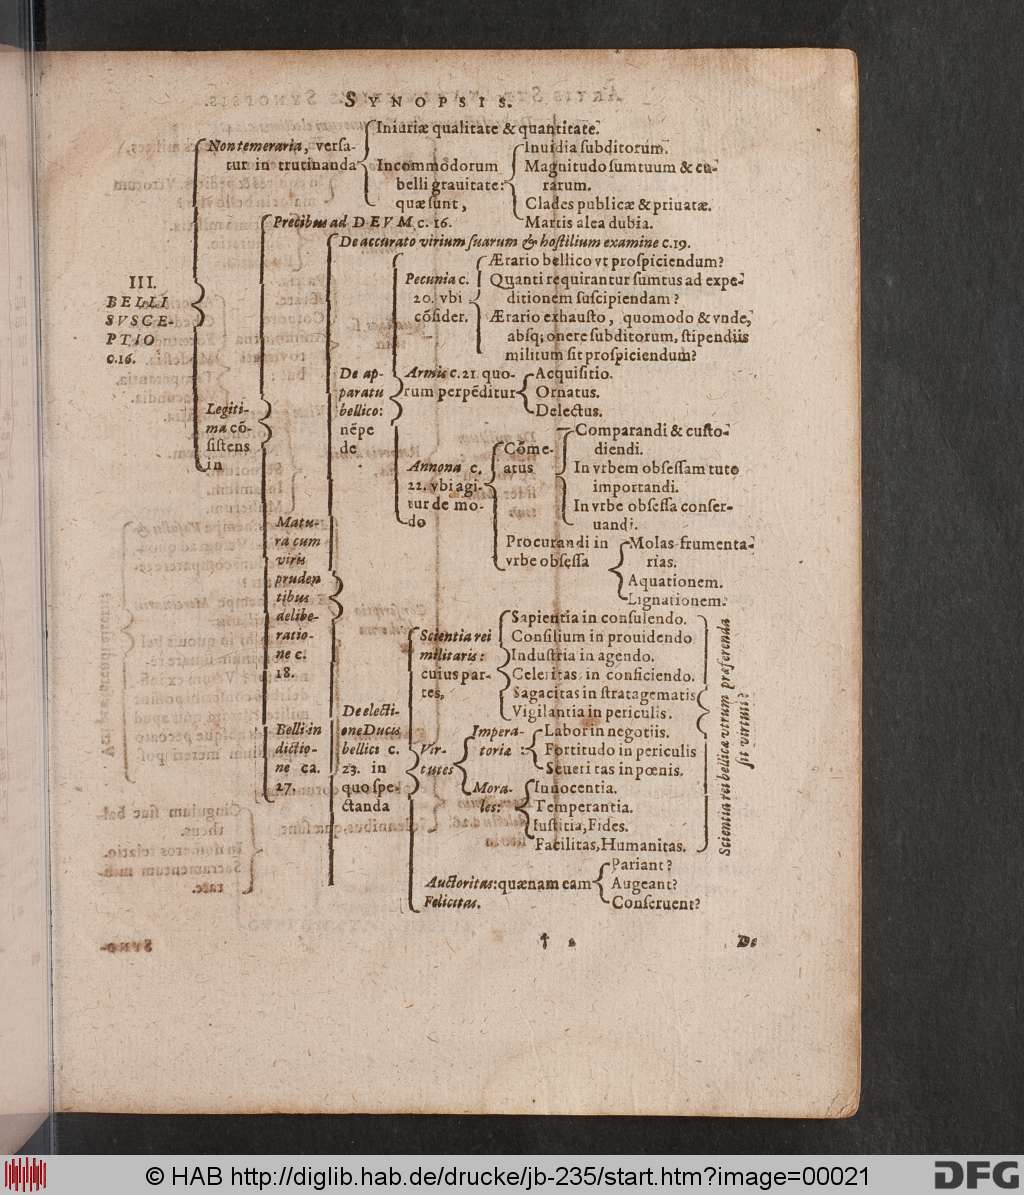 SYNOPSIS.
III.
BELLI
SVSCE-
PTIO
c.16.
Non temeraria, versa-
tur in trutinanda
Iniuriæ qualitate & quantitate.
Incommodorum
belli grauitate:
quæ sunt,
Inuidia subditorum.
Magnitudo sumtuum & cu-
rarum.
Clades publicæ & priuatæ.
Martis alea dubia.
Legiti-
ma cõ-
sistens
in
Precibus ad DEVM c. 16.
Matu-
ra cum
viris
pruden
tibus
delibe-
ratio-
ne c.
18.
De accurato virium suarum & hostilium examine c.19.
De ap-
paratu
bellico:
nẽpe
de
Pecunia c.
20. vbi
cõsider.
Ærario bellico vt prospiciendum?
Quanti requirantur sumtus ad expe-
ditionem suscipiendam?
Ærario exhausto, quomodo & vnde,
absq; onere subditorum, stipendiis
militum sit prospiciendum?
Armis c.21 quo-
rum perpẽditur
Acquisitio.
Ornatus.
Delectus.
Annona c.
22. vbi agi-
tur de mo-
do
Cõme-
atus
Comparandi & custo-
diendi.
In vrbem obsessam tuto
importandi.
In vrbe obsessa conser-
uandi.
Procurandi in
vrbe obsessa
Molas frumenta-
rias.
Aquationem.
Lignationem.
De electi-
one Ducis
bellici c.
23. in
quo spe-
ctanda
Scientia rei
militaris:
cuius par-
tes,
Sapientia in consulendo.
Consilium in prouidendo
Industria in agendo.
Celeritas in conficiendo.
Sagacitas in stratagematis
Vigilantia in periculis.
Vir-
tutes
Impera-
toriæ:
Labor in negotiis.
Fortitudo in periculis
Seueritas in pœnis.
Mora-
les:
Innocentia.
Temperantia.
Iustitia, Fides.
Facilitas, Humanitas.
Scientia rei bellicæ vtrum præferenda
sit virtuti?
Auctoritas: quænam eam
Pariant?
Augeant?
Conseruent?
Felicitas.
Belli in
dictio-
ne ca.
27.
† 2
De
© HAB http://diglib.hab.de/drucke/jb-235/start.htm?image=00021
DFG